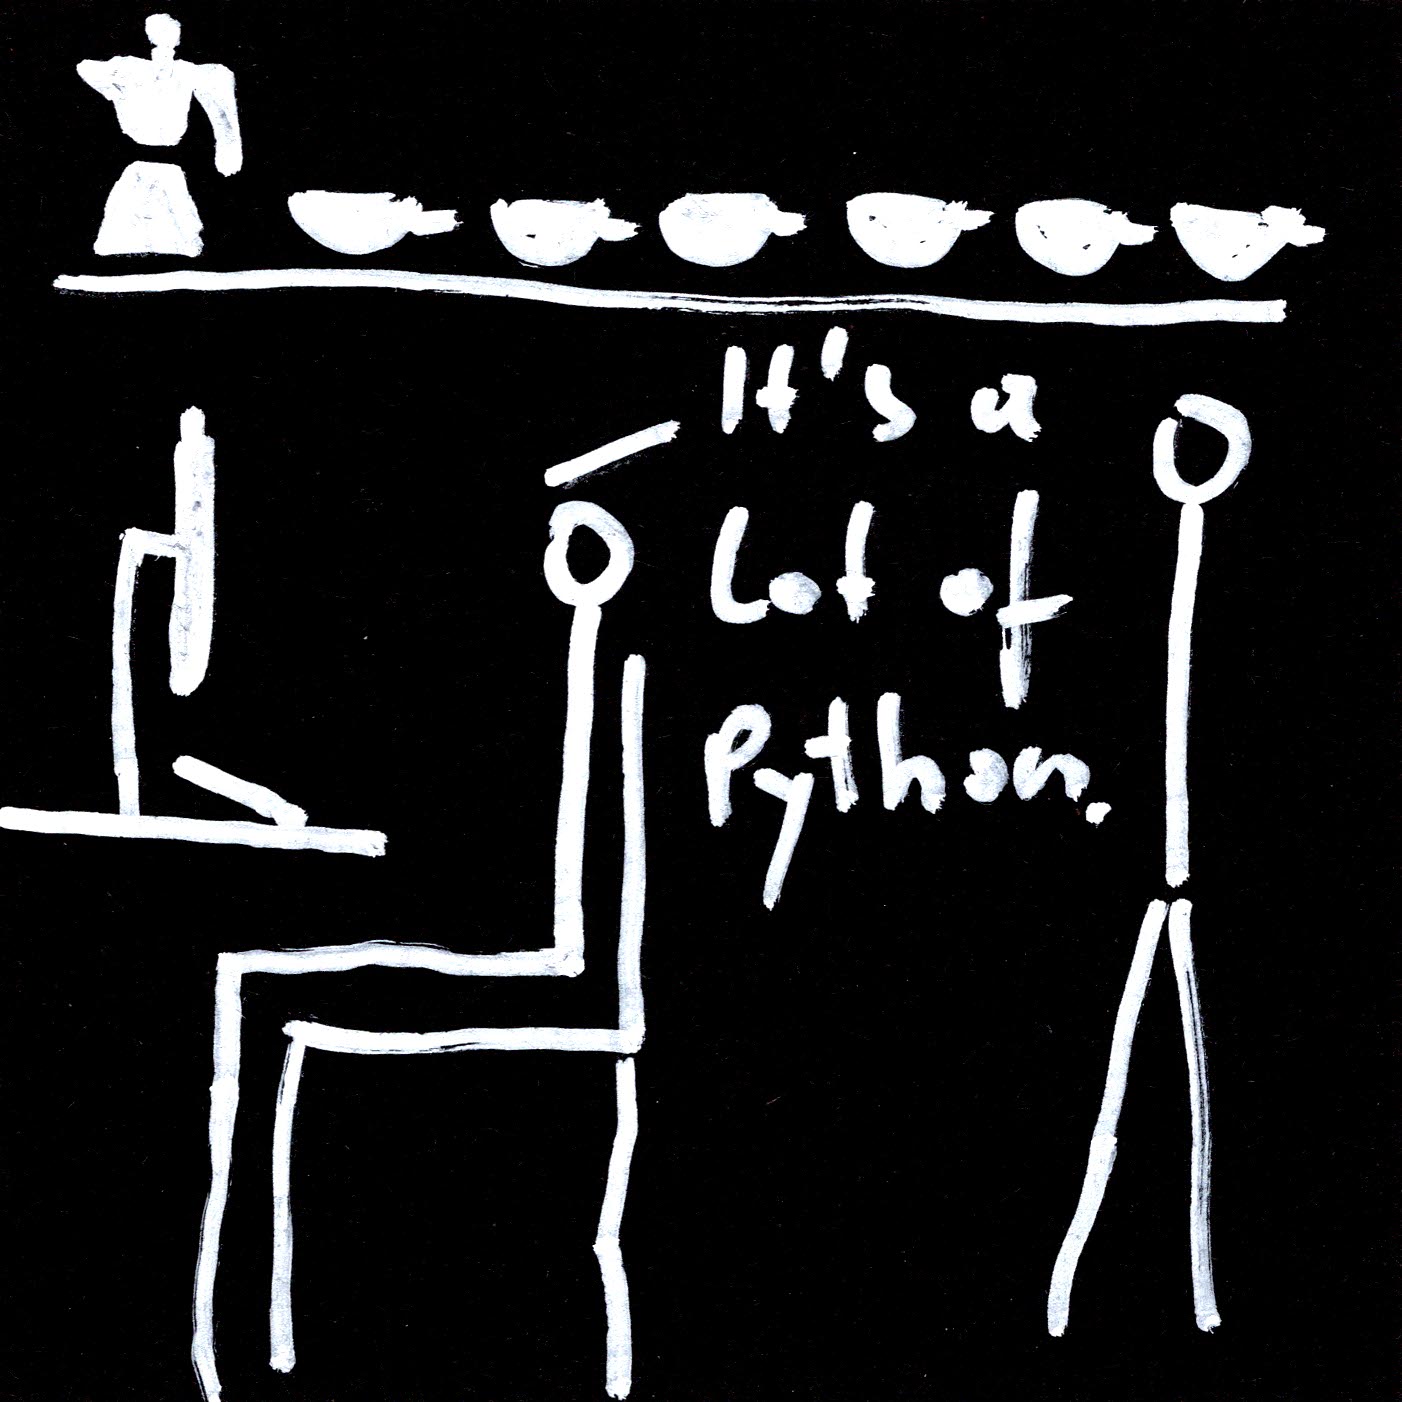 It's a
Lot of
Python.